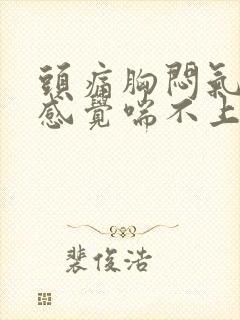 頭痛胸悶氣
感覺喘不上
裴俊浩